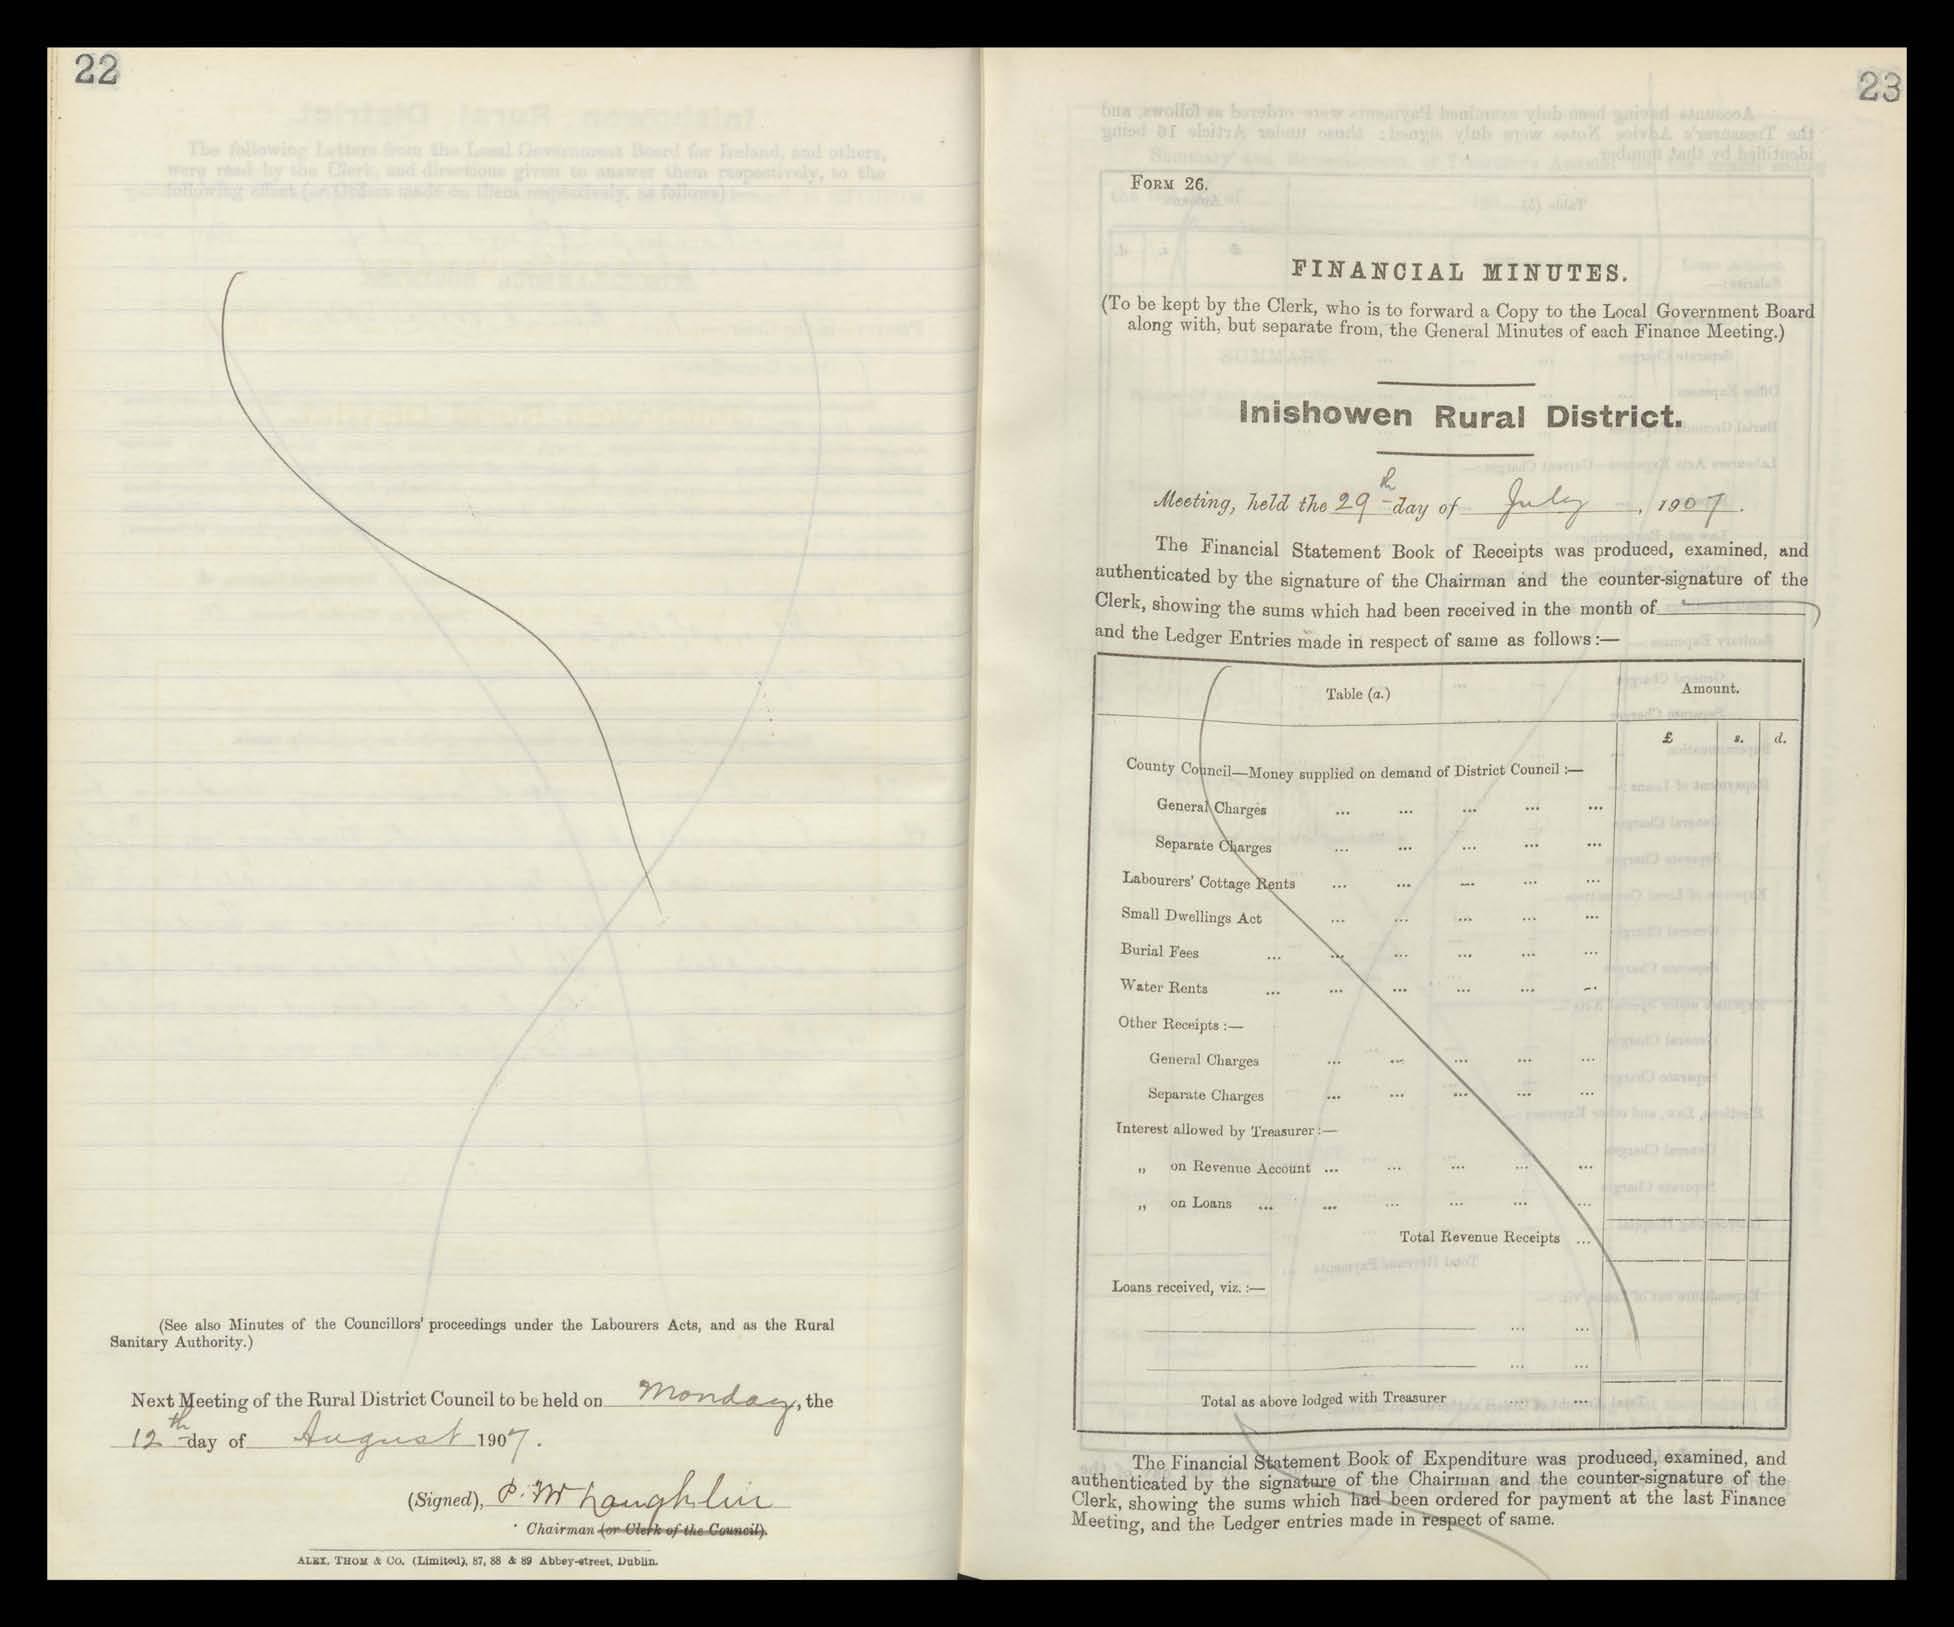 22
(See also Minutes of the Councillors' proceedings under the Labourers Acts, and as the Rural
Sanitary Authority.)
Next Meeting of the Rural District Council to be held on Monday, the
12th day of August 1907.
(Signed), P. McLaughlin
Chairman (or Clerk of the Council).
ALEX. THOM & CO. (Limited), 87, 88 & 89 Abbey-street, Dublin.
23
FORM 26.
FINANCIAL MINUTES.
(To be kept by the Clerk, who is to forward a Copy to the Local Government Board
along with, but separate from, the General Minutes of each Finance Meeting.)
Inishowen Rural District.
Meeting, held the 29th day of July, 1907.
The Financial Statement Book of Receipts was produced, examined, and
authenticated by the signature of the Chairman and the counter-signature of the
Clerk, showing the sums which had been received in the month of
and the Ledger Entries made in respect of same as follows:—
Table (a.) Amount.
£ s. d.
County Council—Money supplied on demand of District Council :—
General Charges ... ... ... ... ...
Separate Charges ... ... ... ... ...
Labourers' Cottage Rents ... ... ... ... ...
Small Dwellings Act ... ... ... ... ...
Burial Fees ... ... ... ... ... ...
Water Rents ... ... ... ... ... ...
Other Receipts :—
General Charges ... ... ... ... ...
Separate Charges ... ... ... ... ...
Interest allowed by Treasurer :—
„ on Revenue Account ... ... ... ... ...
„ on Loans ... ... ... ... ... ...
Total Revenue Receipts ...
Loans received, viz. :—
... ...
... ...
Total as above lodged with Treasurer ... ...
The Financial Statement Book of Expenditure was produced, examined, and
authenticated by the signature of the Chairman and the counter-signature of the
Clerk, showing the sums which had been ordered for payment at the last Finance
Meeting, and the Ledger entries made in respect of same.